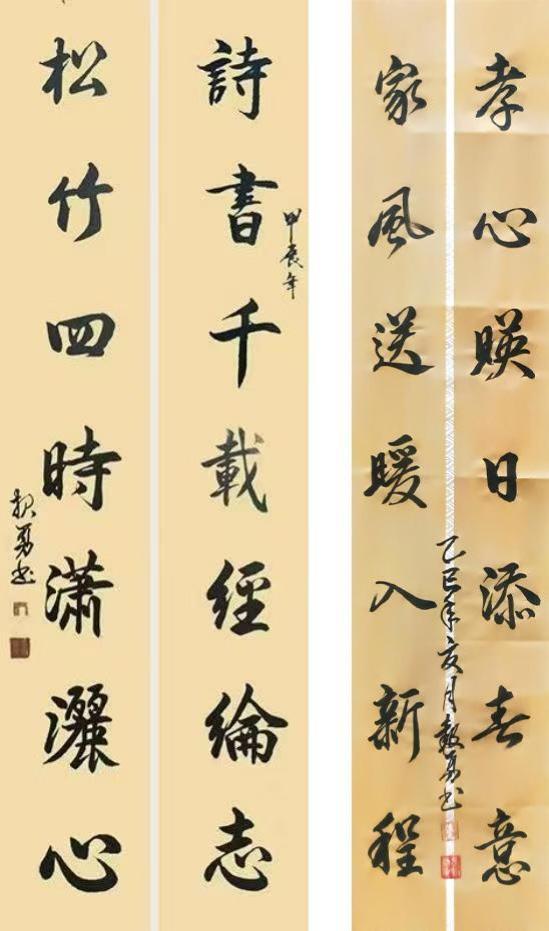 孝心暎日添春意
家風送暖入新程
乙巳年亥月勇书
詩書千載經綸志
甲辰年
松竹四時瀟灑心
勇书